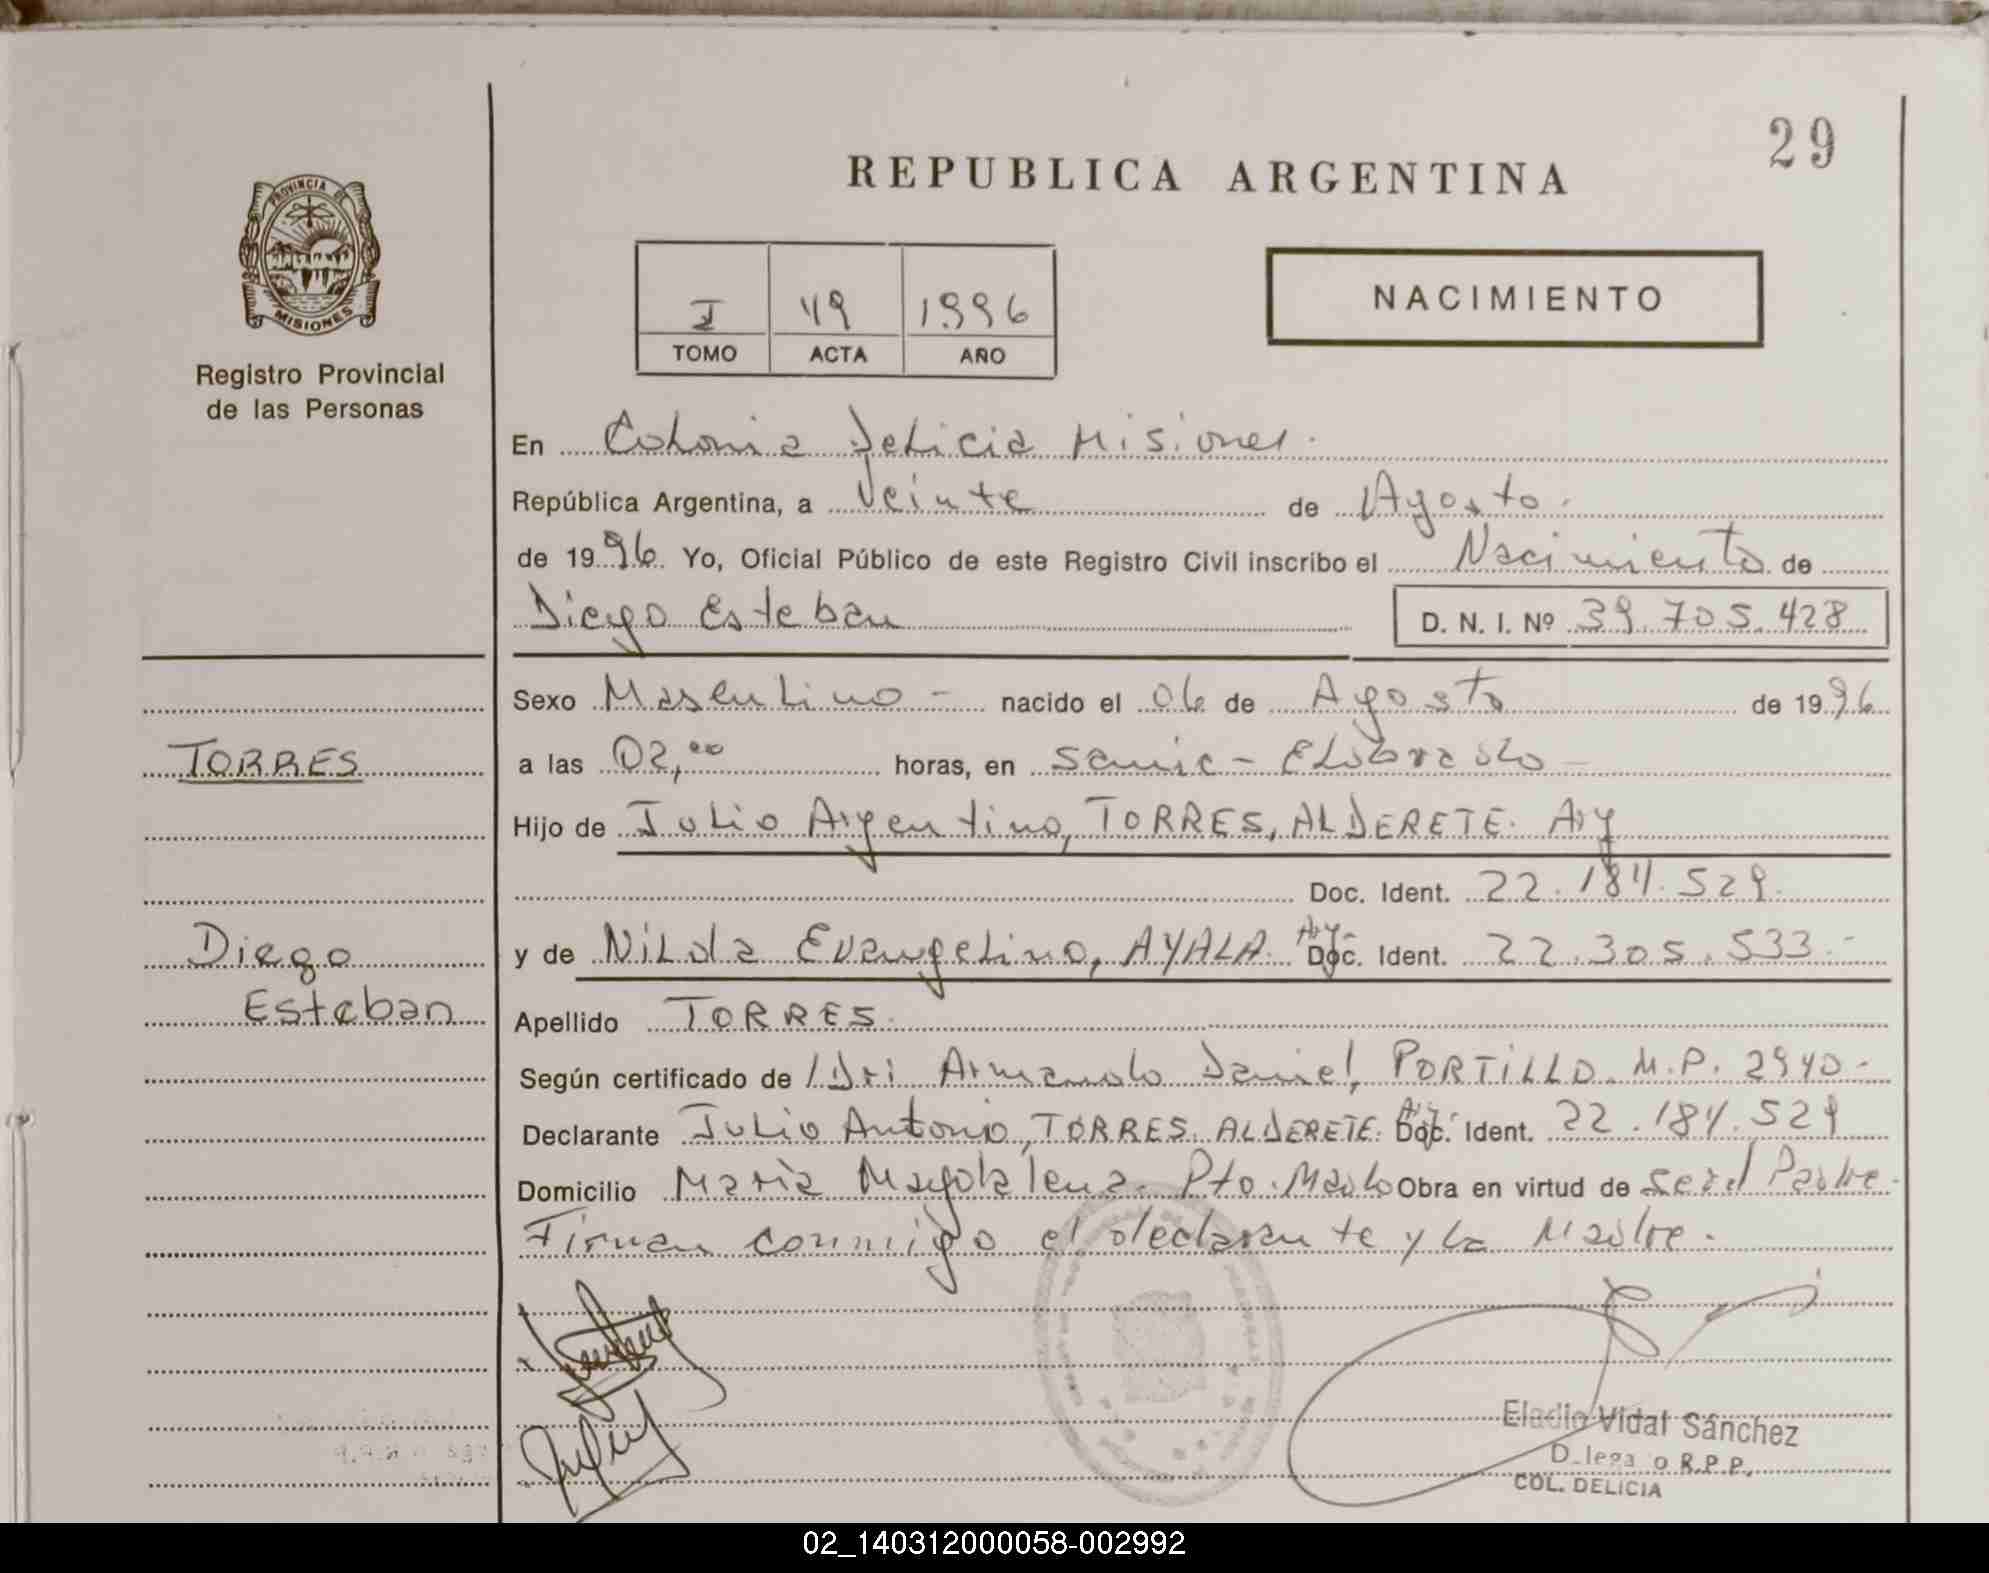 29
REPUBLICA ARGENTINA
PROVINCIA DE
MISIONES
Registro Provincial
de las Personas
I 49 1996
TOMO ACTA AÑO
NACIMIENTO
En Colonia Delicia Misiones.
República Argentina, a Veinte de Agosto.
de 1996 Yo, Oficial Público de este Registro Civil inscribo el Nacimiento de
Diego Esteban D. N. I. Nº 39.705.428
Sexo Masculino - nacido el 06 de Agosto de 1996
TORRES
a las 02,00 horas, en Samic - Eldorado -
Hijo de Julio Argentino, TORRES, ALDERETE. Arg
Doc. Ident. 22.184.529.
Diego
Esteban
y de Nilda Evangelina, AYALA. Arg. Doc. Ident. 22.305.533.-
Apellido TORRES.
Según certificado de Armando Daniel, PORTILLO. M.P. 2940-
Declarante Julio Antonio, TORRES. ALDERETE. Arg. Doc. Ident. 22.184.529
Domicilio María Magdalena. Pto. Mado Obra en virtud de ser el Padre.
Firman conmigo el declarante y la Madre.
Eladio Vidal Sánchez
R.P.P.
COL. DELICIA
02_140312000058-002992